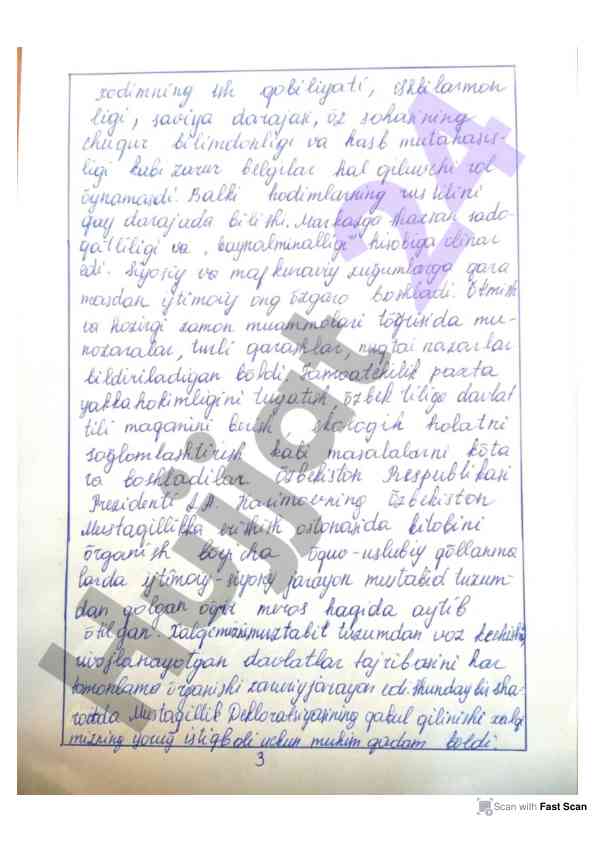 xodimning ish qobiliyati, ishbilarmon
ligi, saviya darajasi, öz sohasining
chuqur bilimdonligi va kasb mutahasis-
ligi kabi zarur belgilar hal qiluvchi rol
öynamasdi. Balki hodimlarning rus tilini
qay darajada bilishi. Markazga shaxsan sado-
qatliligi va „baynalminalligi" hisobiga olinar
edi. Siyosiy va mafkuraviy zuğumlarga qara
masdan ijtimoiy ong özgara boshladi. Ötmish
va hozirgi zamon muammolari töğrisida mu-
nozaralar, turli qarashlar, nuqtai nazarlar
bildiriladigan böldi. Jamoatchilik paxta
yakka hokimligini tugatish özbek tiliga davlat
tili maqamini berish ekologik holatni
soğlomlashtirish kabi masalalarni köta
ra boshladilar. Özbekiston Respublikasi
Prezidenti I.A. Karimovning Özbekiston
Mustaqillikka erishish ostonasida kitobini
örganish böyicha öquv-uslubiy qöllanma
larda ijtimoiy-siyosiy jarayon mustabid tuzum-
dan qolgan öğir meros haqida aytib
ötilgan. Xalqimizni mustabit tuzumdan voz kechishi,
rivojlanayotgan davlatlar tajribasini har
tomonlama örganishi zaruriy jarayon edi. Shunday bir sha-
roitda Mustaqillik Deklaratsiyasining qabul qilinishi xalqi
mizning yoruğ istiqboli uchun muhim qadam böldi.
3
Hujjat 24
Scan with Fast Scan